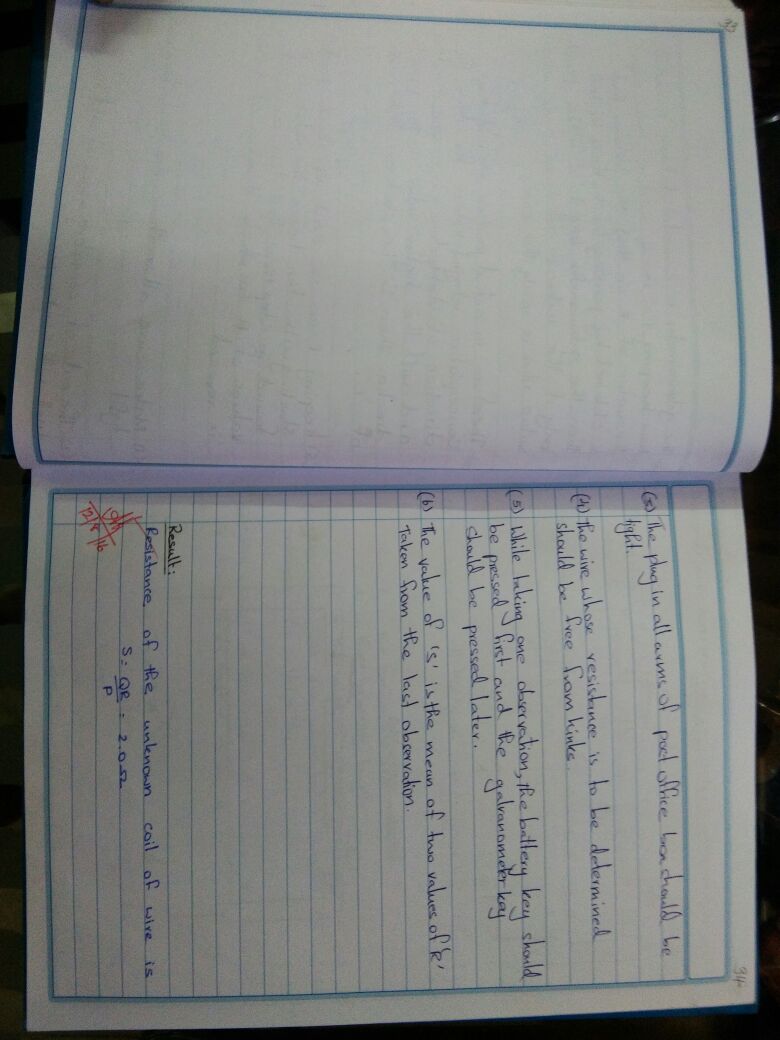 33
34
(3) The plug in all arms of post office box should be
tight.
(4) The wire whose resistance is to be determined
should be free from kinks.
(5) While taking one observation, the battery key should
be pressed first and the galvanometer key
should be pressed later.
(6) The value of 'S' is the mean of two values of 'R'
Taken from the last observation.
Result:
Resistance of the unknown coil of wire is
S = QR/P = 2.0 Ω